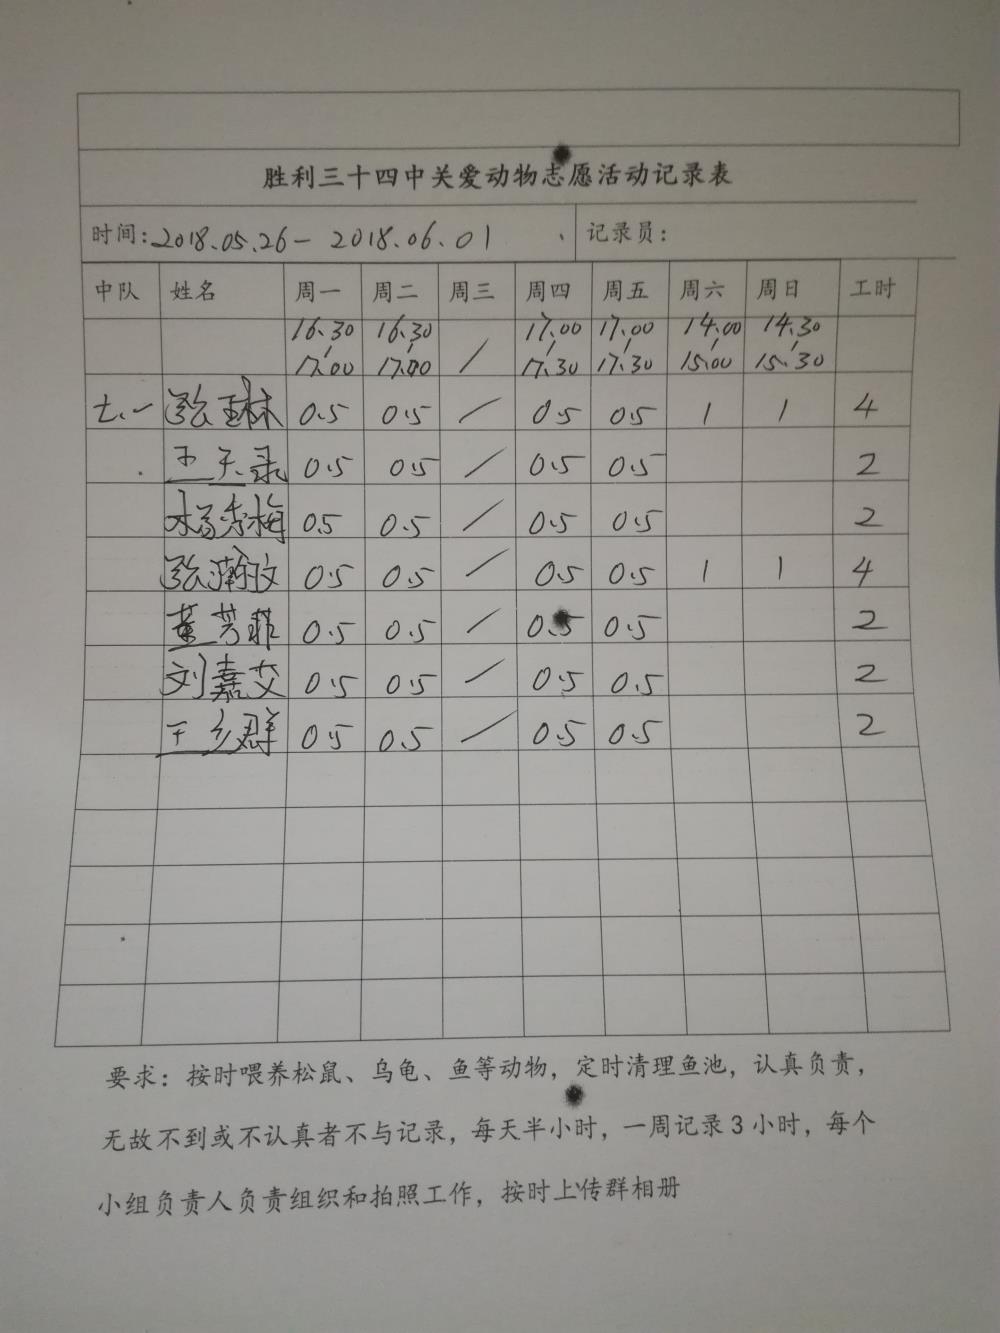 胜利三十四中关爱动物志愿活动记录表
时间:2018.05.26— 2018.06.01 记录员:
中队 姓名 周一 周二 周三 周四 周五 周六 周日 工时
16.30-17.00 16.30-17.00 / 17.00-17.30 17.00-17.30 14.00-15.00 14.30-15.30
七.一 张 林 0.5 0.5 / 0.5 0.5 1 1 4
王天录 0.5 0.5 / 0.5 0.5 2
杨秀梅 0.5 0.5 / 0.5 0.5 2
张瀚 0.5 0.5 / 0.5 0.5 1 1 4
董芳菲 0.5 0.5 / 0.5 0.5 2
刘嘉艾 0.5 0.5 / 0.5 0.5 2
王 群 0.5 0.5 / 0.5 0.5 2
要求：按时喂养松鼠、乌龟、鱼等动物，定时清理鱼池，认真负责，
无故不到或不认真者不与记录，每天半小时，一周记录 3 小时，每个
小组负责人负责组织和拍照工作，按时上传群相册